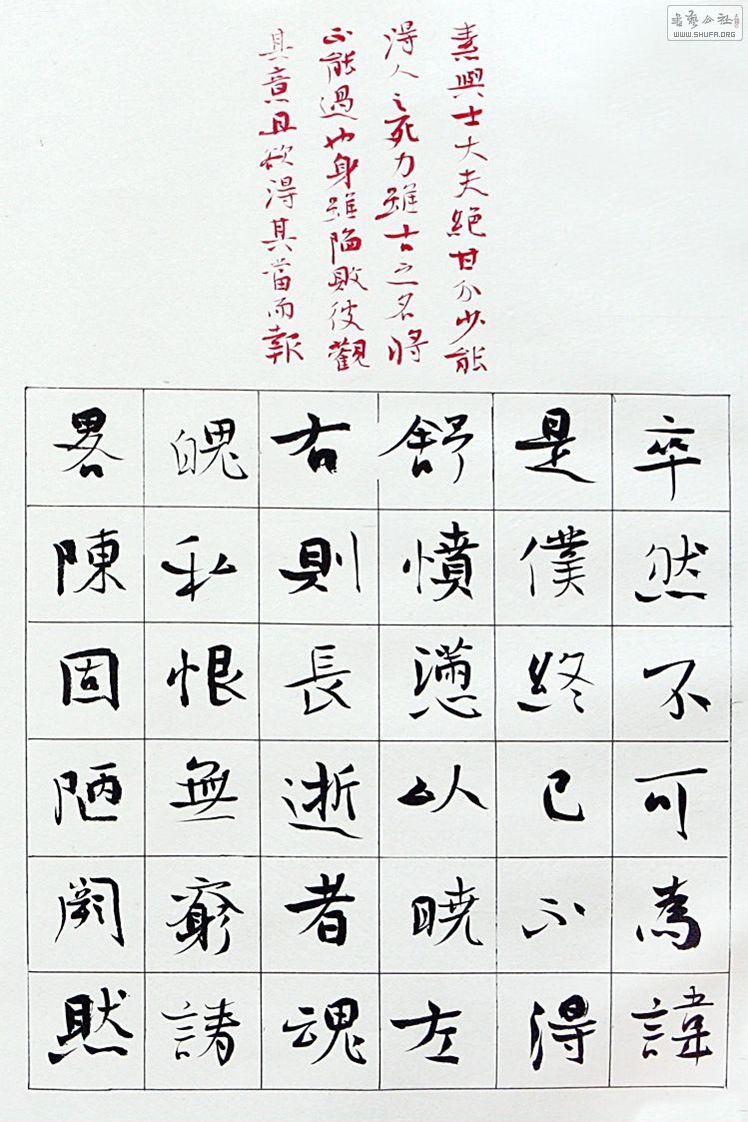 書藝公社
WWW.SHUFA.ORG
素與士大夫絕甘分少能
得人之死力雖古之名將
不能過也身雖陷敗彼觀
其意且欲得其當而報
卒然不可為諱
是僕終已不得
舒憤懣以曉左
右則長逝者魂
魄私恨無窮請
畧陳固陋闕然